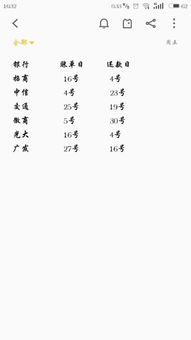 16:32
0.33 K/s 62
银行 账单日 还款日
招商 16号 4号
中信 4号 23号
交通 25号 19号
徽商 5号 30号
光大 16号 4号
广发 27号 16号